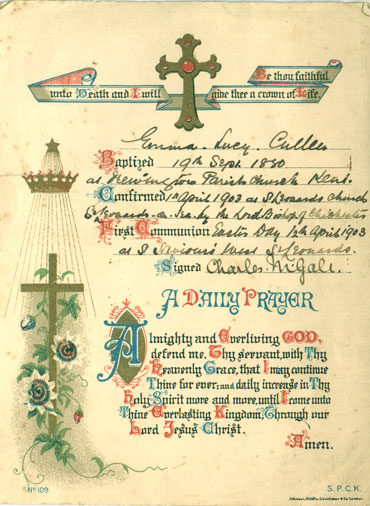 Be thou faithful
unto Death and I will give thee a crown of Life.
Emma Lucy Cullen
Baptized 19th Sept 1880
at Newington Parish Church Kent
Confirmed 1st April 1903 at S Leonards church
S Leonards-on-Sea by the Lord Bishop of Chichester
First Communion Easter Day 12th April 1903
at S Saviours West S Leonards.
Signed Charles W Gale.
A DAILY PRAYER
Almighty and Everliving GOD,
defend me, Thy servant, with Thy
Heavenly Grace, that I may continue
Thine for ever; and daily increase in Thy
Holy Spirit more and more, until I come unto
Thine Everlasting Kingdom, Through our
Lord Jesus Christ.
Amen.
Nº 109
S.P.C.K.